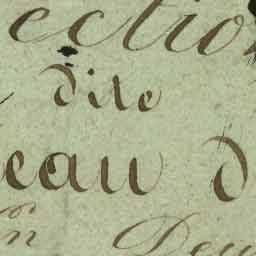 ectio
dite
eau d
n Deu